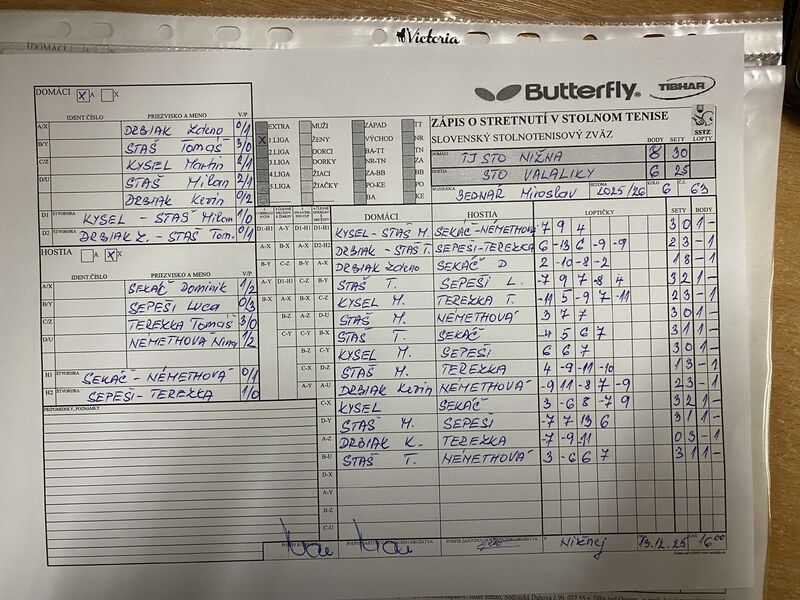 Victoria
DOMÁCI X A X
Butterfly TIBHAR
IDENT.ČÍSLO PRIEZVISKO A MENO V/P
ZÁPIS O STRETNUTÍ V STOLNOM TENISE
SLOVENSKÝ STOLNOTENISOVÝ ZVÄZ BODY SETY LOPTY
SSTZ
A/X DRBIAK Zdeno 0/1
B/Y STAŠ Tomáš 3/0
C/Z KYSEL Martin 2/1
D/U STAŠ Milan 2/1
DRBIAK Kevin 0/2
D1 ŠTVORHRA KYSEL - STAŠ Milan 1/0
D2 ŠTVORHRA DRBIAK Z. - STAŠ Tom. 0/1
EXTRA MUŽI ZÁPAD TT
X 1.LIGA ŽENY VÝCHOD NR
2.LIGA DORCI BA-TT TN
3.LIGA DORKY NR-TN ZA
4.LIGA ŽIACI ZA-BB BB
5.LIGA ŽIAČKY PO-KE PO
BA KE
DOMÁCI TJ STO NIŽNÁ 8 30
HOSTIA STO VALALIKY 6 25
ROZHODCA BEDNÁR Miroslav SEZÓNA 2025/26 KOLO 6 Č.Z. 63
HOSTIA A X X
IDENT.ČÍSLO PRIEZVISKO A MENO V/P
A/X SEKÁČ Dominik 1/2
B/Y SEPEŠI Luca 0/3
C/Z TEREZKA Tomáš 3/0
D/U NEMETHOVÁ Nina 1/2
H1 ŠTVORHRA SEKÁČ - NÉMETHOVÁ 0/1
H2 ŠTVORHRA SEPEŠI - TEREZKA 1/0
PRIPOMIENKY, POZNÁMKY
DOMÁCI HOSTIA LOPTIČKY SETY BODY
D1-H1 A-Y D1-H1 D1-H1 KYSEL - STAŠ M. SEKÁČ-NÉMETHOVÁ 7 9 4 3 0 1 -
A-X B-X D2-H2 DRBIAK - STAŠ T. SEPEŠI-TEREZKA 6 -13 6 -9 -9 2 3 - 1
B-Y C-Z DRBIAK Zdeno SEKÁČ D 2 -10 -8 -2 1 3 - 1
STAŠ T. SEPEŠI L. -7 9 7 -8 4 3 2 1 -
KYSEL M. TEREZKA T. -11 5 -9 7 -11 2 3 - 1
STAŠ M. NEMETHOVÁ 3 7 7 3 0 1 -
STAŠ T. SEKÁČ -4 5 6 7 3 1 1 -
KYSEL M. SEPEŠI 6 6 7 3 0 1 -
STAŠ M. TEREZKA 4 -9 -11 -10 1 3 - 1
DRBIAK Kevin NÉMETHOVÁ -9 11 -8 7 -9 2 3 - 1
C-X KYSEL SEKÁČ 3 -6 8 -7 9 3 2 1 -
D-Y STAŠ M. SEPEŠI -7 7 13 6 3 1 1 -
A-Z DRBIAK K. TEREZKA -7 -9 -11 0 3 - 1
B-U STAŠ T. NÉMETHOVÁ 3 -6 6 7 3 1 1 -
D-X
A-Y
B-Z
C-U
V Nižnej 13.12.25 ČAS 16 00